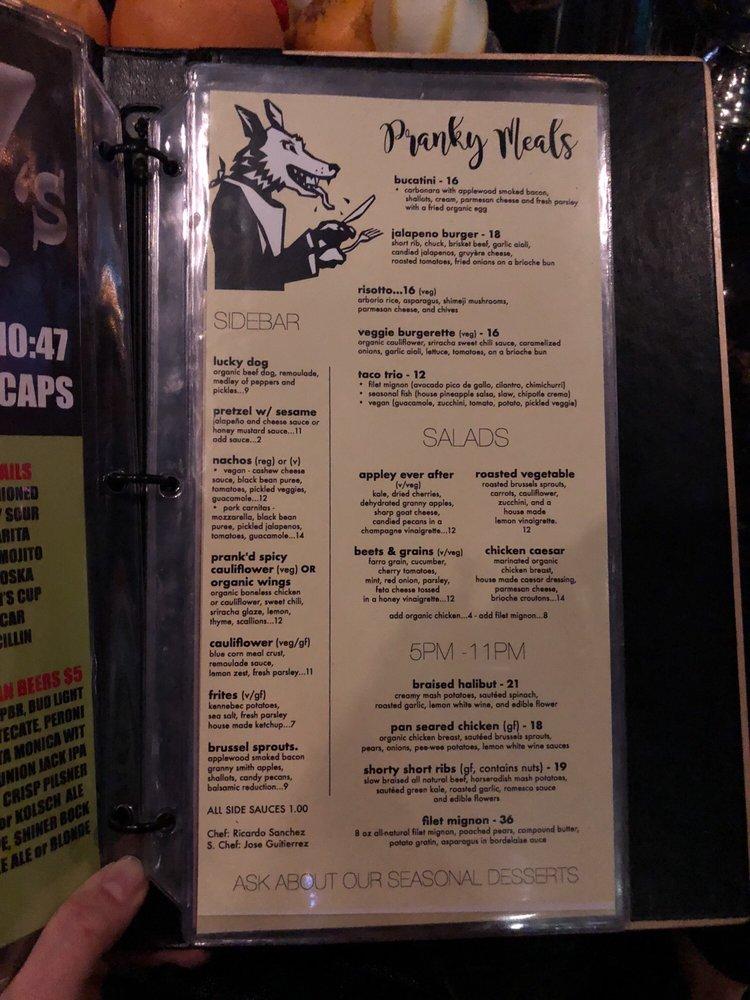 'S
10:47
CAPS
AILS
IONED
Y SOUR
ARITA
MOJITO
OSKA
N'S CUP
CAR
CILLIN
AN BEERS $5
PBR, BUD LIGHT
TECATE, PERONI
TA MONICA WIT
UNION JACK IPA
CRISP PILSNER
or KOLSCH ALE
DE, SHINER BOCK
LE ALE or BLONDE
Pranky Meals
bucatini - 16
• carbonara with applewood smoked bacon,
shallots, cream, parmesan cheese and fresh parsley
with a fried organic egg
jalapeno burger - 18
short rib, chuck, brisket beef, garlic aioli,
candied jalapenos, gruyère cheese,
roasted tomatoes, fried onions on a brioche bun
risotto...16 (veg)
arborio rice, asparagus, shimeji mushrooms,
parmesan cheese, and chives
veggie burgerette (veg) - 16
organic cauliflower, sriracha sweet chili sauce, caramelized
onions, garlic aioli, lettuce, tomatoes, on a brioche bun
taco trio - 12
• filet mignon (avocado pico de gallo, cilantro, chimichurri)
• seasonal fish (house pineapple salsa, slaw, chipotle crema)
• vegan (guacamole, zucchini, tomato, potato, pickled veggie)
SIDEBAR
lucky dog
organic beef dog, remoulade,
medley of peppers and
pickles...9
pretzel w/ sesame
jalapeño and cheese sauce or
honey mustard sauce...11
add sauce...2
nachos (reg) or (v)
• vegan - cashew cheese
sauce, black bean puree,
tomatoes, pickled veggies,
guacamole...12
• pork carnitas -
mozzarella, black bean
puree, pickled jalapenos,
tomatoes, guacamole...14
prank'd spicy
cauliflower (veg) OR
organic wings
organic boneless chicken
or cauliflower, sweet chili,
sriracha glaze, lemon,
thyme, scallions...12
cauliflower (veg/gf)
blue corn meal crust,
remoulade sauce,
lemon zest, fresh parsley...11
frites (v/gf)
kennebec potatoes,
sea salt, fresh parsley
house made ketchup...7
brussel sprouts.
applewood smoked bacon
granny smith apples,
shallots, candy pecans,
balsamic reduction...9
ALL SIDE SAUCES 1.00
Chef: Ricardo Sanchez
S. Chef: Jose Guitierrez
SALADS
appley ever after
(v/veg)
kale, dried cherries,
dehydrated granny apples,
sharp goat cheese,
candied pecans in a
champagne vinaigrette...12
roasted vegetable
roasted brussels sprouts,
carrots, cauliflower,
zucchini, and a
house made
lemon vinaigrette.
12
beets & grains (v/veg)
farro grain, cucumber,
cherry tomatoes,
mint, red onion, parsley,
feta cheese tossed
in a honey vinaigrette...12
chicken caesar
marinated organic
chicken breast,
house made caesar dressing,
parmesan cheese,
brioche croutons...14
add organic chicken...4 - add filet mignon...8
5PM -11PM
braised halibut - 21
creamy mash potatoes, sautéed spinach,
roasted garlic, lemon white wine, and edible flower
pan seared chicken (gf) - 18
organic chicken breast, sautéed brussels sprouts,
pears, onions, pee-wee potatoes, lemon white wine sauces
shorty short ribs (gf, contains nuts) - 19
slow braised all natural beef, horseradish mash potatoes,
sautéed green kale, roasted garlic, romesco sauce
and edible flowers
filet mignon - 36
8 oz all-natural filet mignon, poached pears, compound butter,
potato gratin, asparagus in bordelaise auce
ASK ABOUT OUR SEASONAL DESSERTS